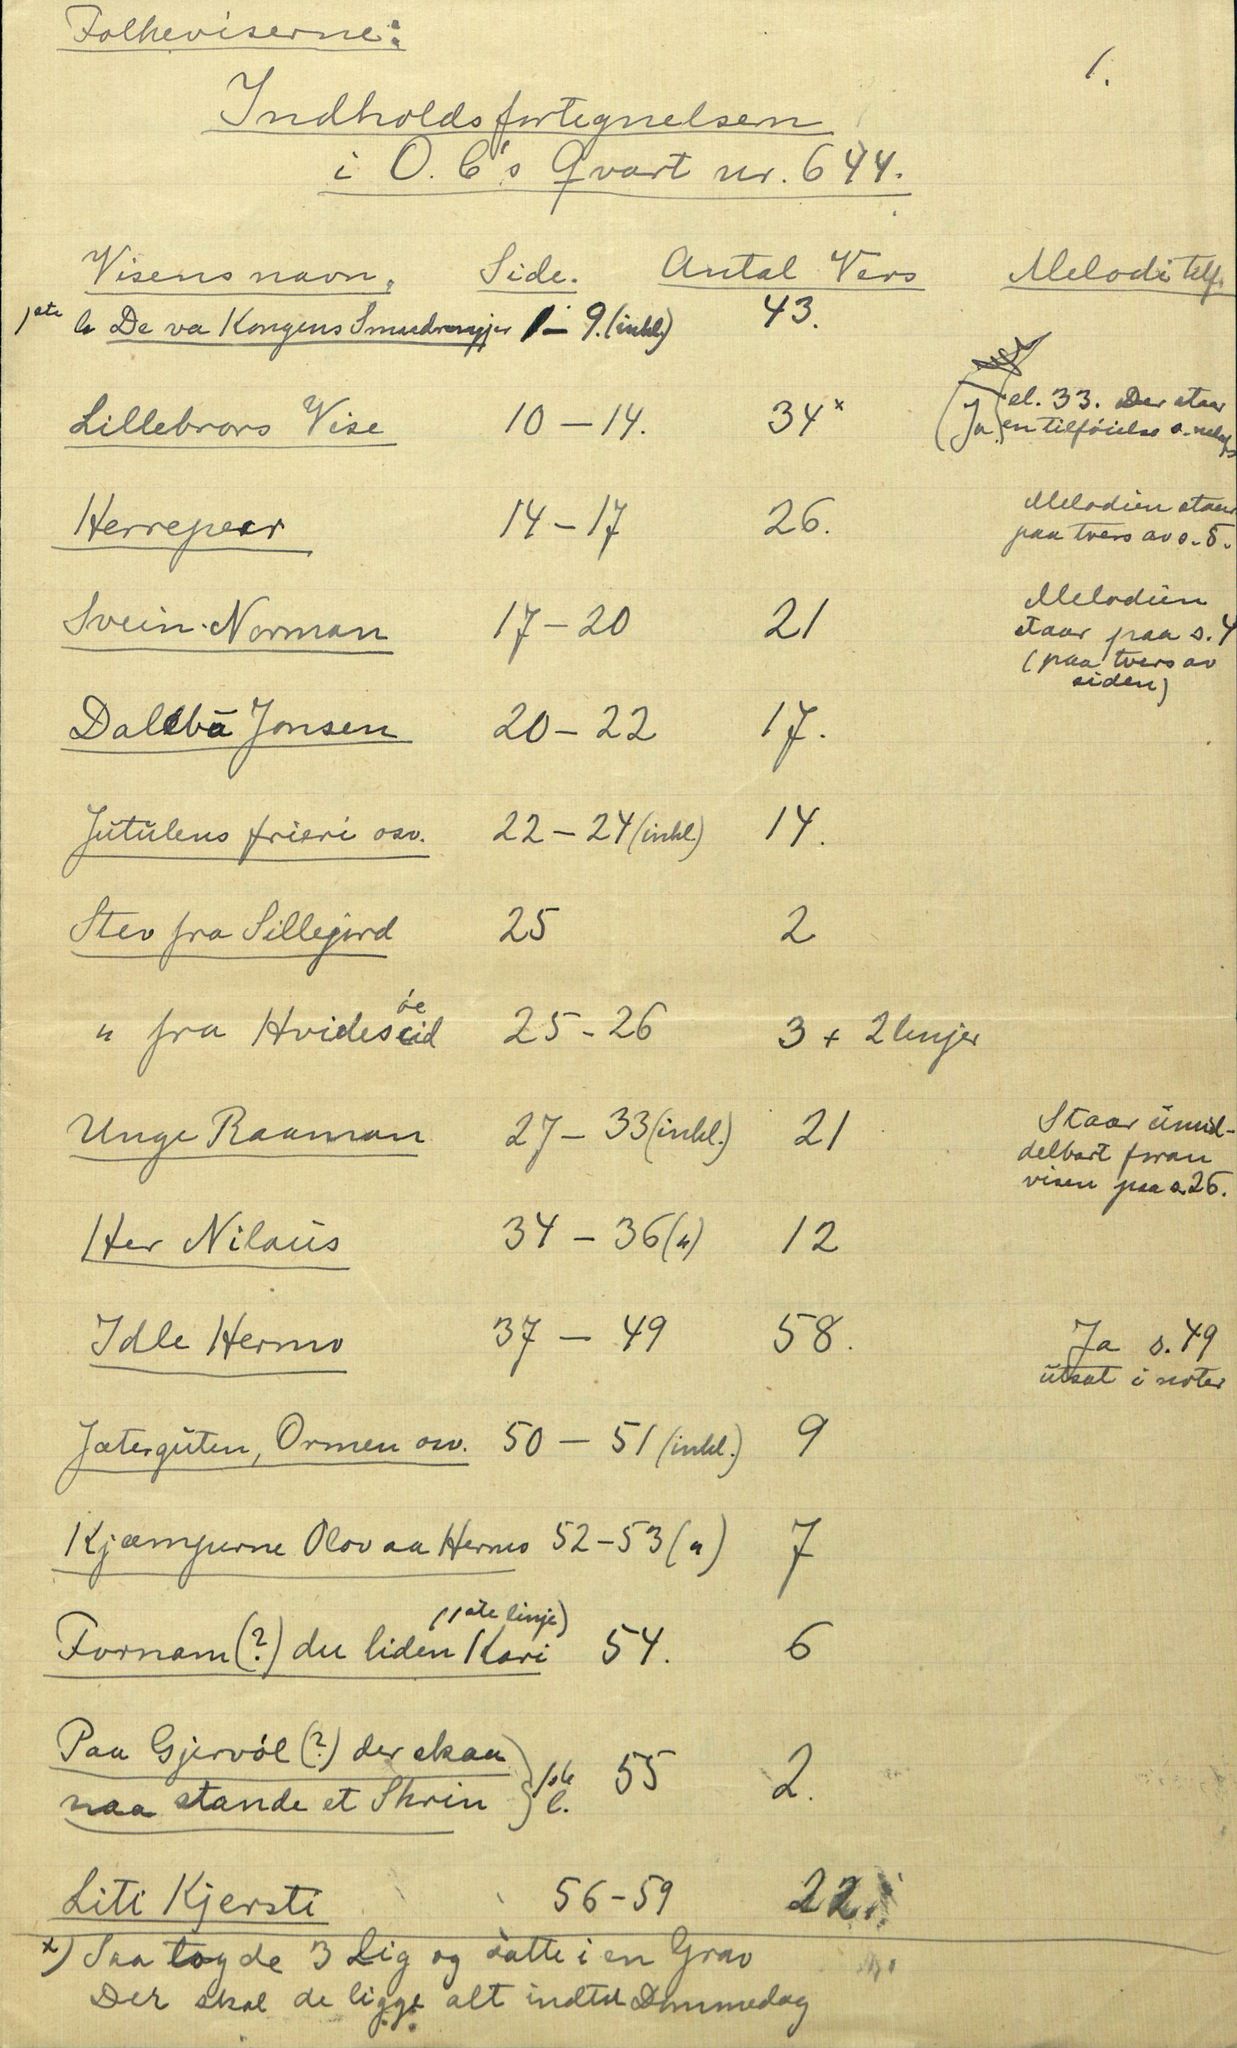 Folkeviserne:
1.
Indholdsfortegnelsen
i O. C's Qvart nr. 644.
Visens navn, Side. Antal Vers Melodi tilf.
1ste l. De va Kongens Smudrengjer 1 – 9. (inkl.) 43.
Lillebrors Vise 10 – 14. 34 x (Ja) el. 33. Der staar
en tilföielse
Herrepeer 14 – 17 26. Melodien staar
paa tvers av s. 5.
Svein Norman 17 – 20 21 Melodien
staar paa s. 4
(paa tvers av
siden)
Dalebå Jonsen 20 – 22 17.
Jutulens frieri osv. 22 – 24 (inkl.) 14.
Stev fra Sillejord 25 2
" fra Hvideseid 25 – 26 3 + 2 linjer
öe
Unge Raaman 27 – 33 (inkl.) 21 Staar umid-
delbart foran
visen paa s. 26.
Her Nilaus 34 – 36 (") 12
Idle Hermo 37 – 49 58. Ja s. 49
utsat i noter
Jæterguten, Ormen osv. 50 – 51 (inkl.) 9
Kjæmperne Olov aa Hermo 52 – 53 (") 7
(1ste linje)
Fornam (?) du liden Kari 54. 6
Paa Gjervöl (?) der skaa
naa stande et Skrin } 1ste l. 55 2.
Liti Kjersti 56 – 59 22.
x) Saa tog de 3 Lig og satte i en Grav
Der skal de ligge alt indtil Dommedag